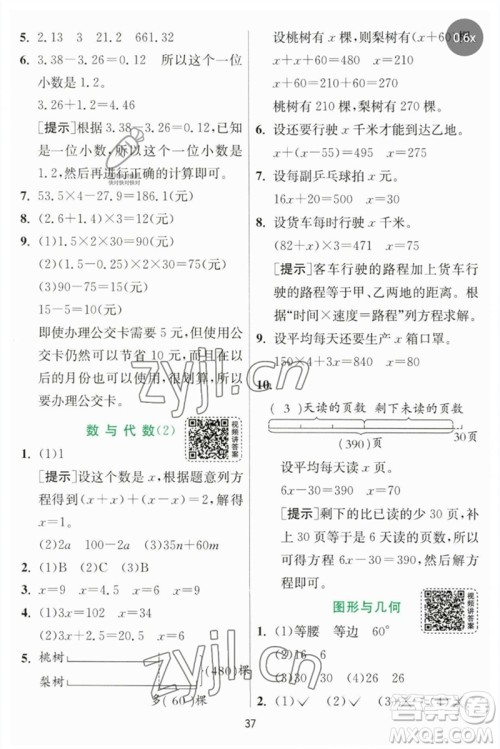 5. 2.13 3 21.2 661.32
6. 3.38-3.26=0.12 所以这个一位
小数是1.2。
3.26+1.2=4.46
[提示]根据3.38-3.26=0.12,已知
是一位小数,因此这个一位小数是
1.2,然后再进行正确的计算即可。
7. 53.5×4-27.9=186.1(元)
8. (2.6+1.4)×3=12(元)
9. (1)1.5×2×30=90(元)
(2)(1.5-0.25)×2×30=75(元)
(3)90-75=15(元)
15-5=10(元)
即使办理公交卡需要5元,但使用公
交卡仍然可以节省10元,而且可以
用的月份很长,很划算,所以我要
办理公交卡。
数与代数(2)
视频讲答案
1. (1)1
[提示]设这个数是x,根据题意列方
程得到(x+x)+(x-x)=2,解得
x=1。
(2)2a 100-2a (3)35n+10
3. x=9 x=4.5 x=15
4. (2)3x+2.5x=11 x=2
5. 桃树
梨树
(480)棵
多(60)棵
设桃树有x棵,则梨树有(x+60)棵。
0.6x
x+x+60=480 x=210
桃树有210棵,梨树有270棵。
6. 设还要行驶x千米才能到达乙地。
x+60=282 x=222
7. 设每副乒乓球拍x元。
16x+20=500 x=30
8. 设货车每时行驶x千米。
(82+x)×3=471 x=75
[提示]客车行驶的路程加上货车行
驶的路程等于甲、乙两地的距离,根
据“时间×速度=路程”列方程求解。
9. 设平均每天还要生产x箱口罩。
150×4+3x=840 x=80
10.
(3)天读的页数 剩下未读的页数
(390)页 30页
设平均每天读x页。
6x-30=390 x=70
[提示]剩下的比已读的少30页,补
上30页等于6天读的页数,所以可
列方程为6x-30=390,解方程即可。
图形与几何
视频讲答案
1. (1)等腰 等边 60°
(2)4 (3)30 (4)26 26
2. (1)✓ (2)✓
37
zyjl.cn
zyjl.cn
答案圈
MXQE.COM